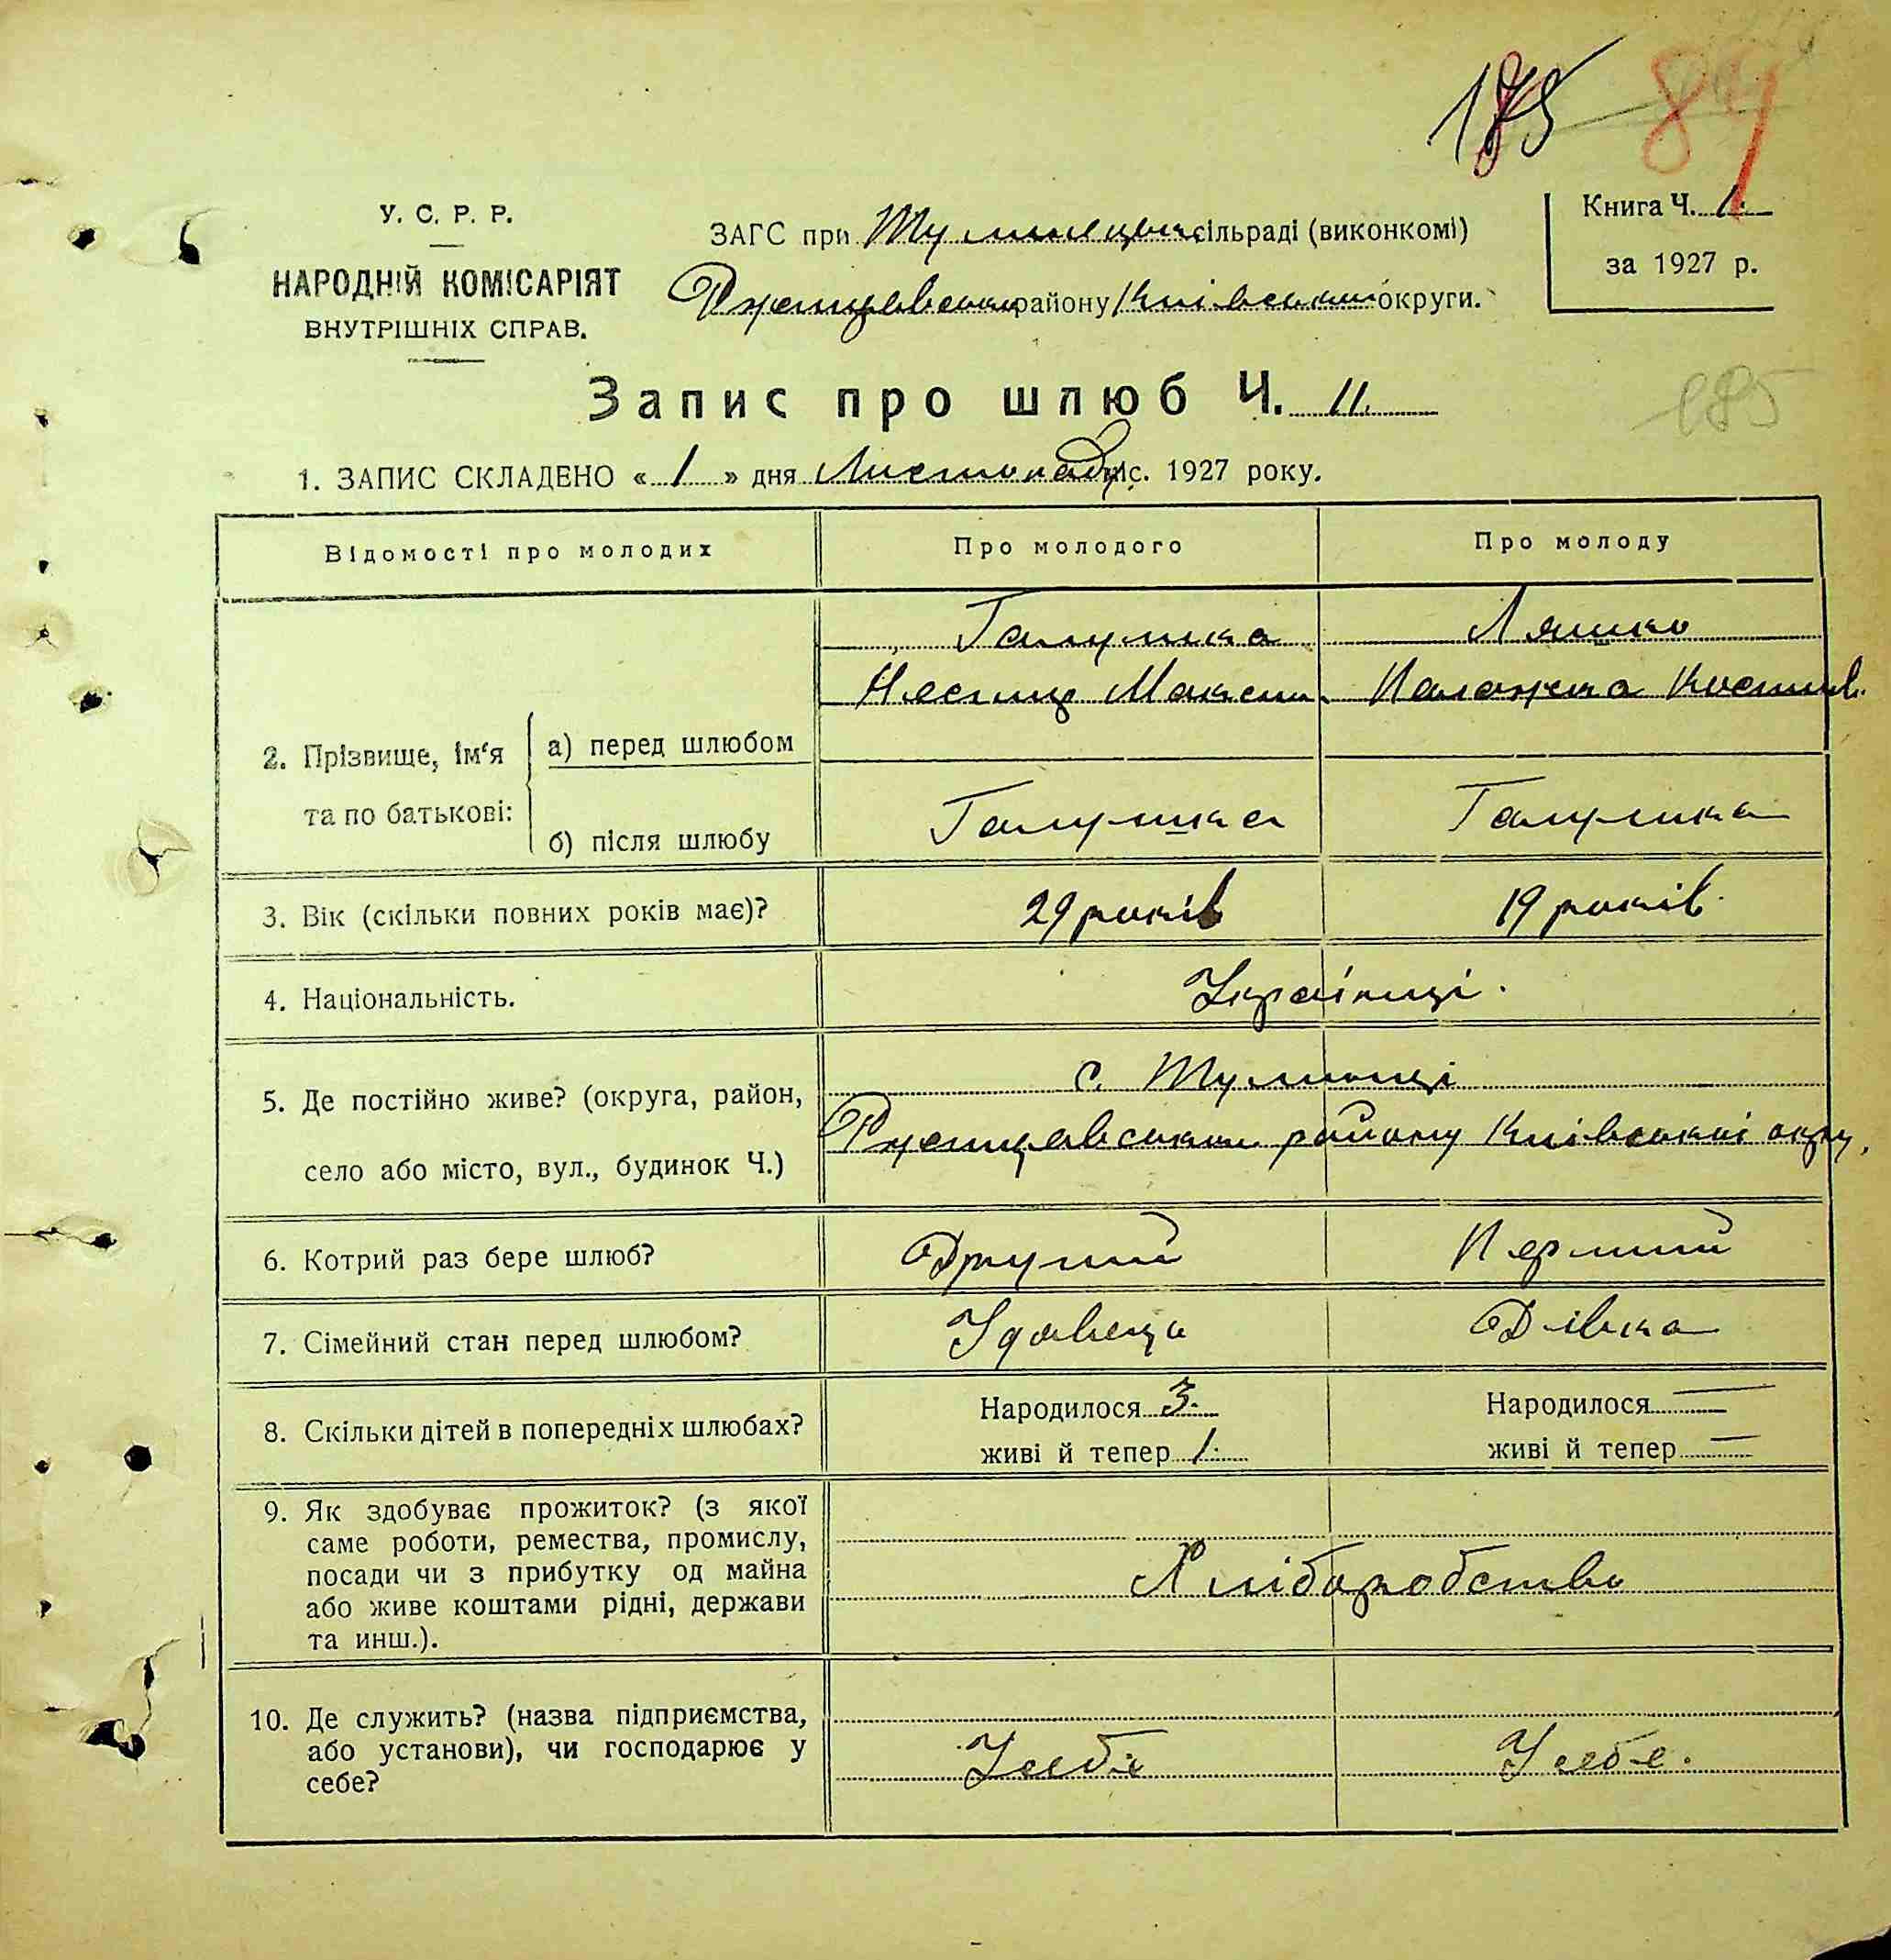 185 89
У. С. Р. Р.
НАРОДНІЙ КОМІСАРІЯТ
ВНУТРІШНІХ СПРАВ.
ЗАГС при Тулинецькій сільраді (виконкомі)
Ржищевського району Київської округи.
Книга Ч. 1.
за 1927 р.
Запис про шлюб Ч. 11.
185
1. ЗАПИС СКЛАДЕНО « 1 » дня Листопада міс. 1927 року.
Відомості про молодих
Про молодого
Про молоду
2. Прізвище, ім‘я та по батькові:
а) перед шлюбом
Галушка
Максим.
Ляшко
Палажка Костив.
б) після шлюбу
Галушка
Галушка
3. Вік (скільки повних років має)?
29 років
19 років.
4. Національність.
Українці.
5. Де постійно живе? (округа, район,
село або місто, вул., будинок Ч.)
с. Тулинці
Ржищевського району Київської окру.
6. Котрий раз бере шлюб?
Другий
Перший
7. Сімейний стан перед шлюбом?
Удовець
Дівка
8. Скільки дітей в попередніх шлюбах?
Народилося 3.
живі й тепер 1.
Народилося —
живі й тепер —
9. Як здобуває прожиток? (з якої
саме роботи, ремества, промислу,
посади чи з прибутку од майна
або живе коштами рідні, держави
та инш.).
Хліборобство
10. Де служить? (назва підприємства,
або установи), чи господарює у
себе?
У себе
У себе.